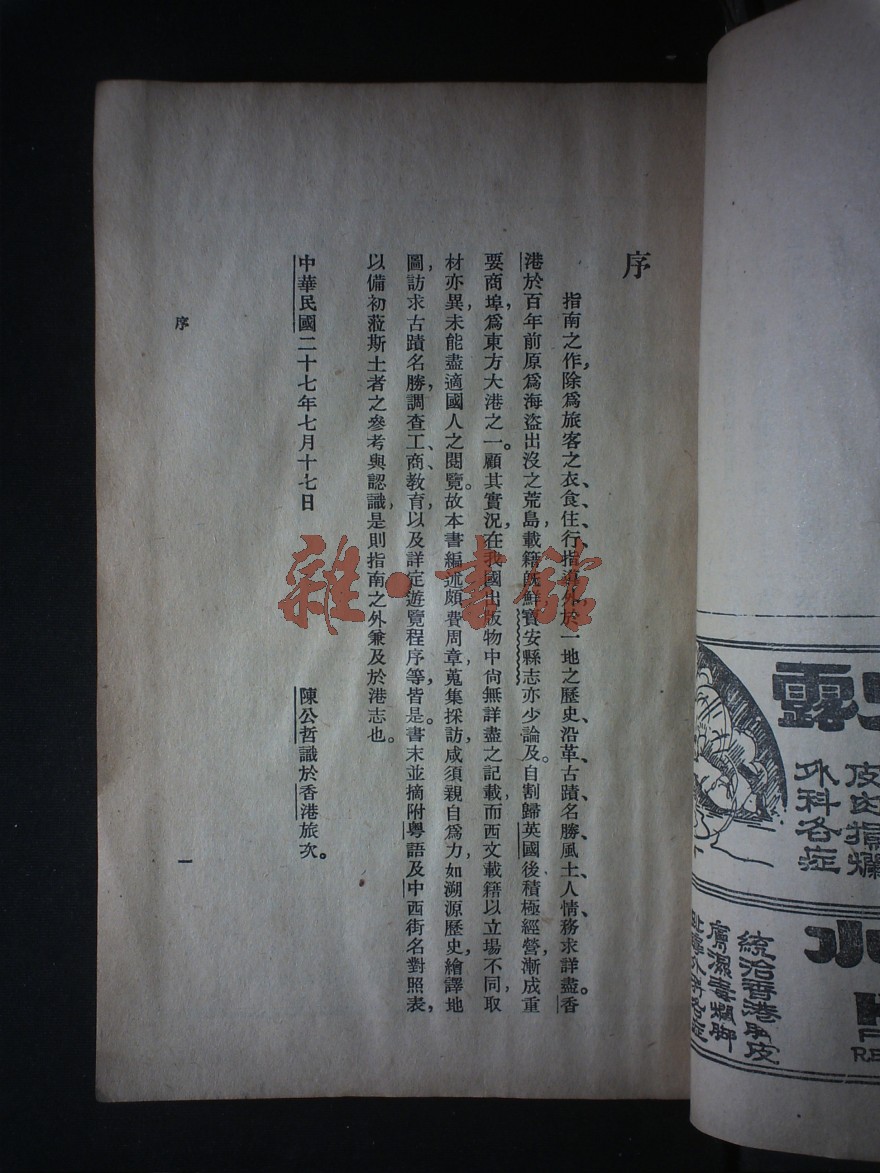 序
指南之作，除爲旅客之衣、食、住、行指導外，於一地之歷史、沿革、古蹟、名勝、風土、人情、務求詳盡。香
港於百年前原爲海盜出沒之荒島，載籍旣鮮，寶安縣志亦少論及。自割歸英國後，積極經營，漸成重
要商埠，爲東方大港之一。顧其實況，在我國出版物中尙無詳盡之記載，而西文載籍以立場不同，取
材亦異，未能盡適國人之閱覽。故本書編述頗費周章，蒐集採訪，咸須親自爲力，如溯源歷史，繪譯地
圖，訪求古蹟名勝，調查工、商、教育，以及詳定遊覽程序等，皆是。書末並摘附粵語及中西街名對照表，
以備初蒞斯土者之參考與認識，是則指南之外兼及於港志也。
中華民國二十七年七月十七日
陳公哲識於香港旅次。
序
一
雜·書館
露
皮肉損爛
外科各症
水
統治香港脚皮
膚濕毒爛脚